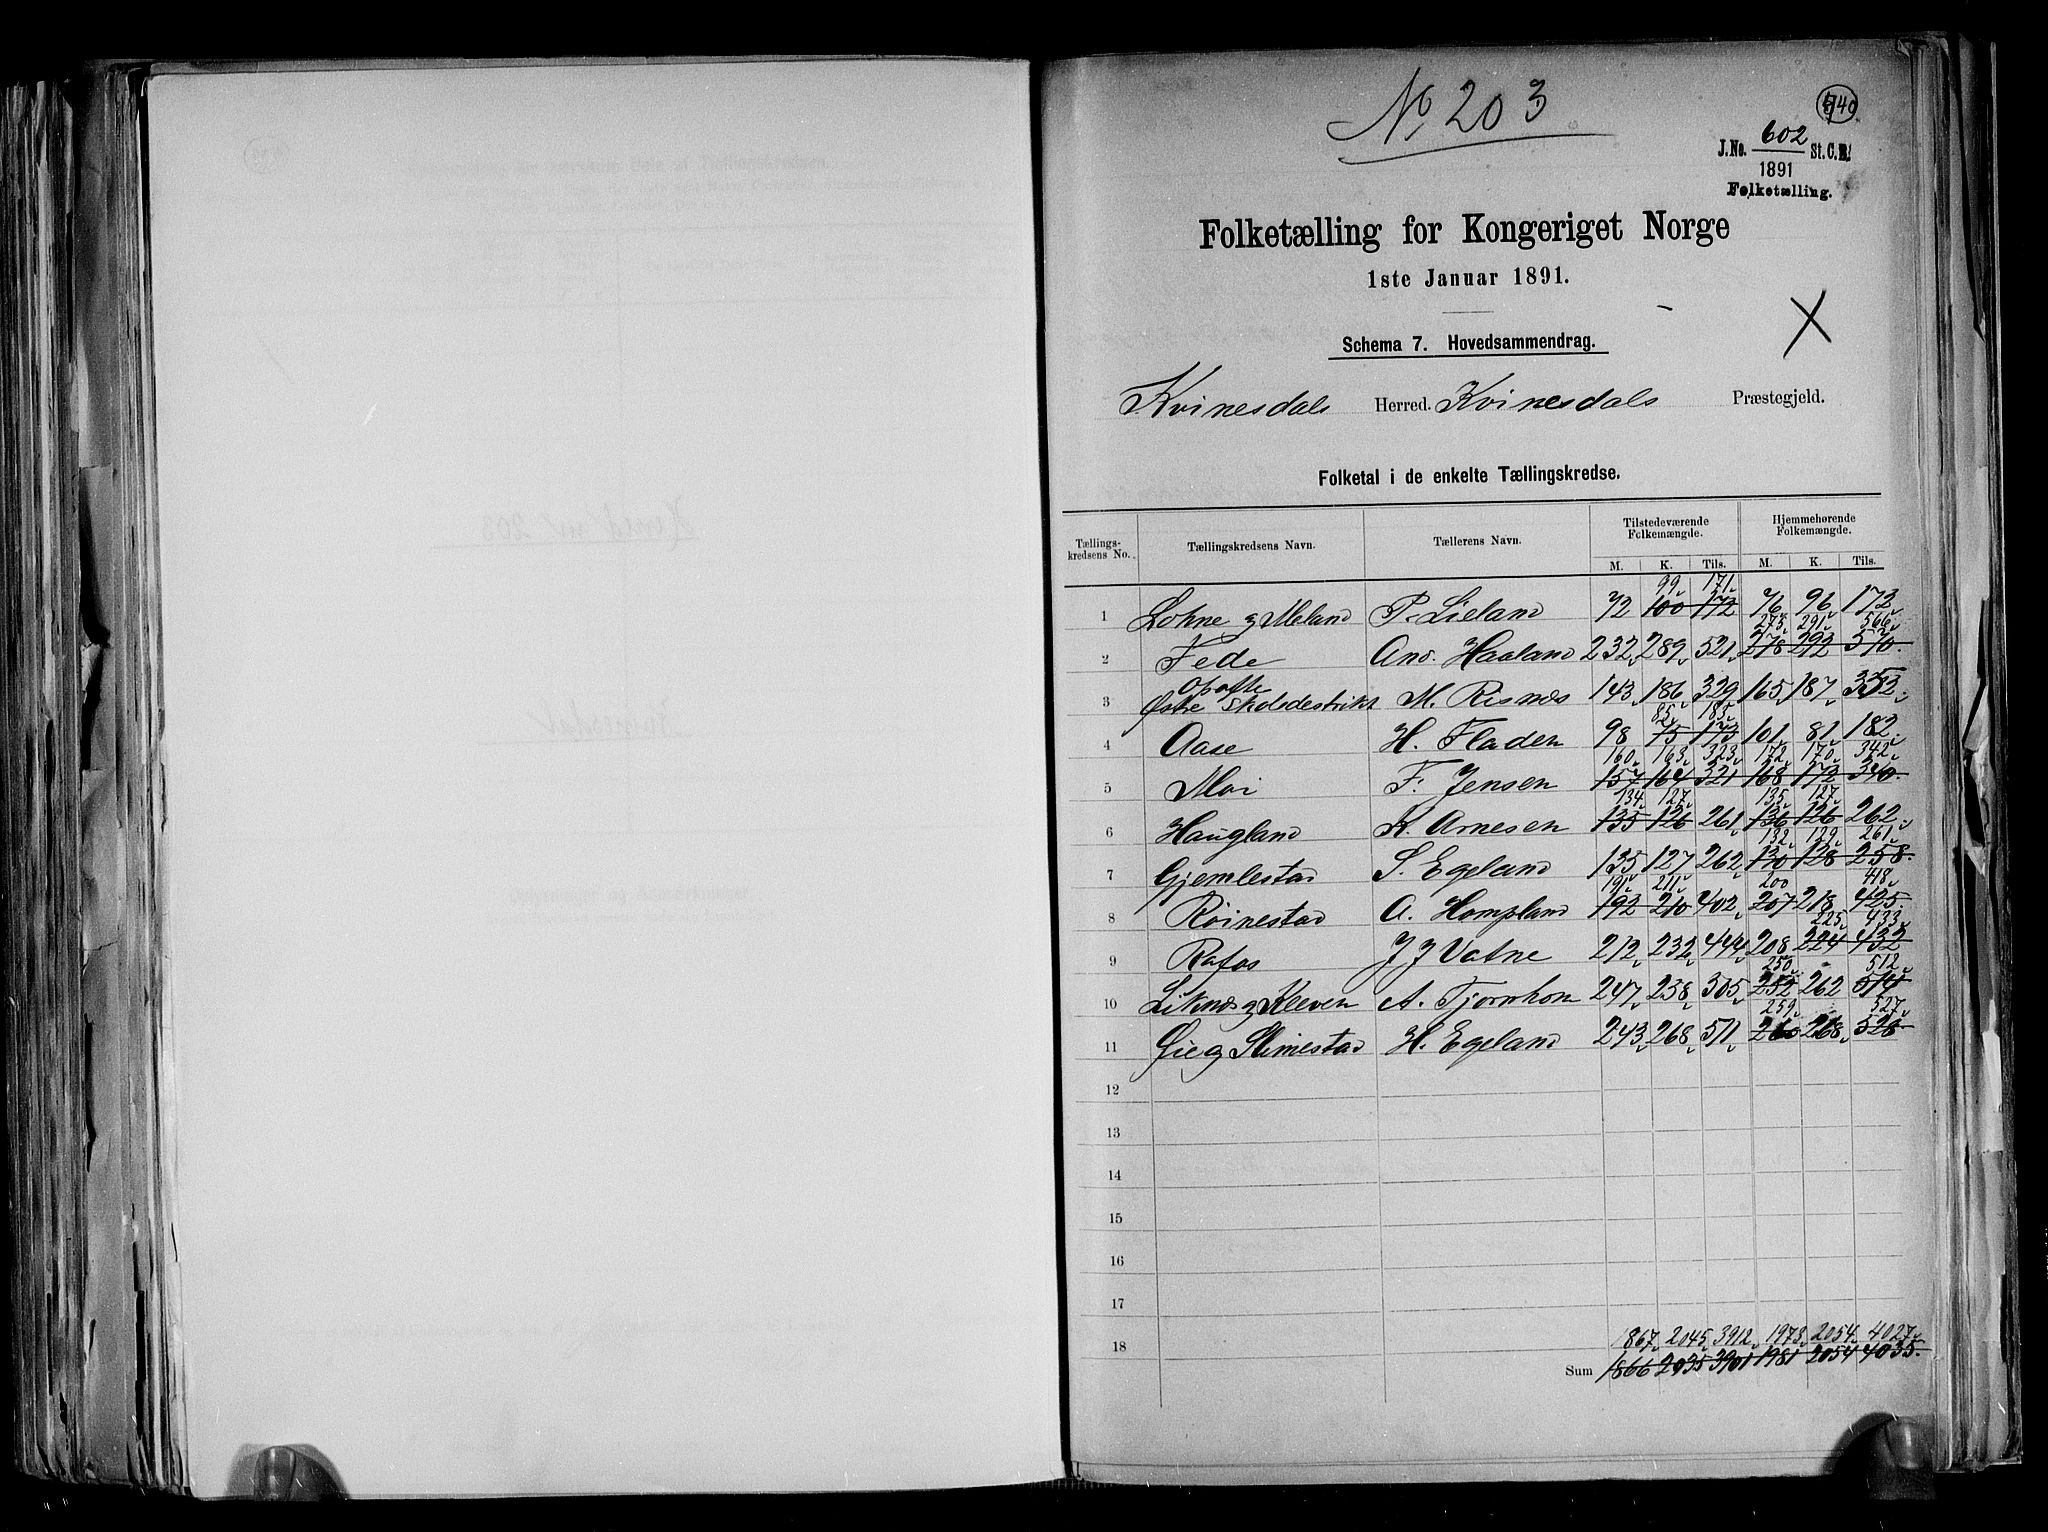 No 203
740
J.No. 602 St.C.B.
1891
Folketælling.
Folketælling for Kongeriget Norge
1ste Januar 1891.
Schema 7. Hovedsammendrag.
Kvinesdals Herred. Kvinesdals Præstegjeld.
Folketal i de enkelte Tællingskredse.
Tællings-kredsens No. Tællingskredsens Navn. Tællerens Navn. Tilstedeværende Folkemængde. Hjemmehørende Folkemængde.
M. K. Tils. M. K. Tils.
99 171
1 Lohne og Meland P. Lieland 72 100 172 76 96 172
273 291 566
2 Fede And. Haaland 232 289 521 278 292 570
Opofte
3 Østre Skoledestrikt M. Risnæs 143 186 329 165 187 352
85 183
4 Aase H. Fladen 98 75 173 101 81 182
160 163 323 172 170 342
5 Moi F. Jensen 157 164 321 168 172 340
134 127 135 127
6 Haugland K. Arnesen 135 126 261 136 126 262
132 129 261
7 Gjemlestad S. Egeland 135 127 262 130 128 258
191 211 200 418
8 Røinestad A. Hompland 192 210 402 207 218 425
225 433
9 Rafos J J Vatne 212 232 444 208 224 432
250 512
10 Liknæs og Kleven A. Tjornhom 247 258 505 252 262 514
259 527
11 Øie og Slimestad H. Egeland 243 268 511 260 268 528
12
13
14
15
16
17
18 1867 2045 3912 1973 2054 4027
Sum 1866 2035 3901 1981 2054 4035